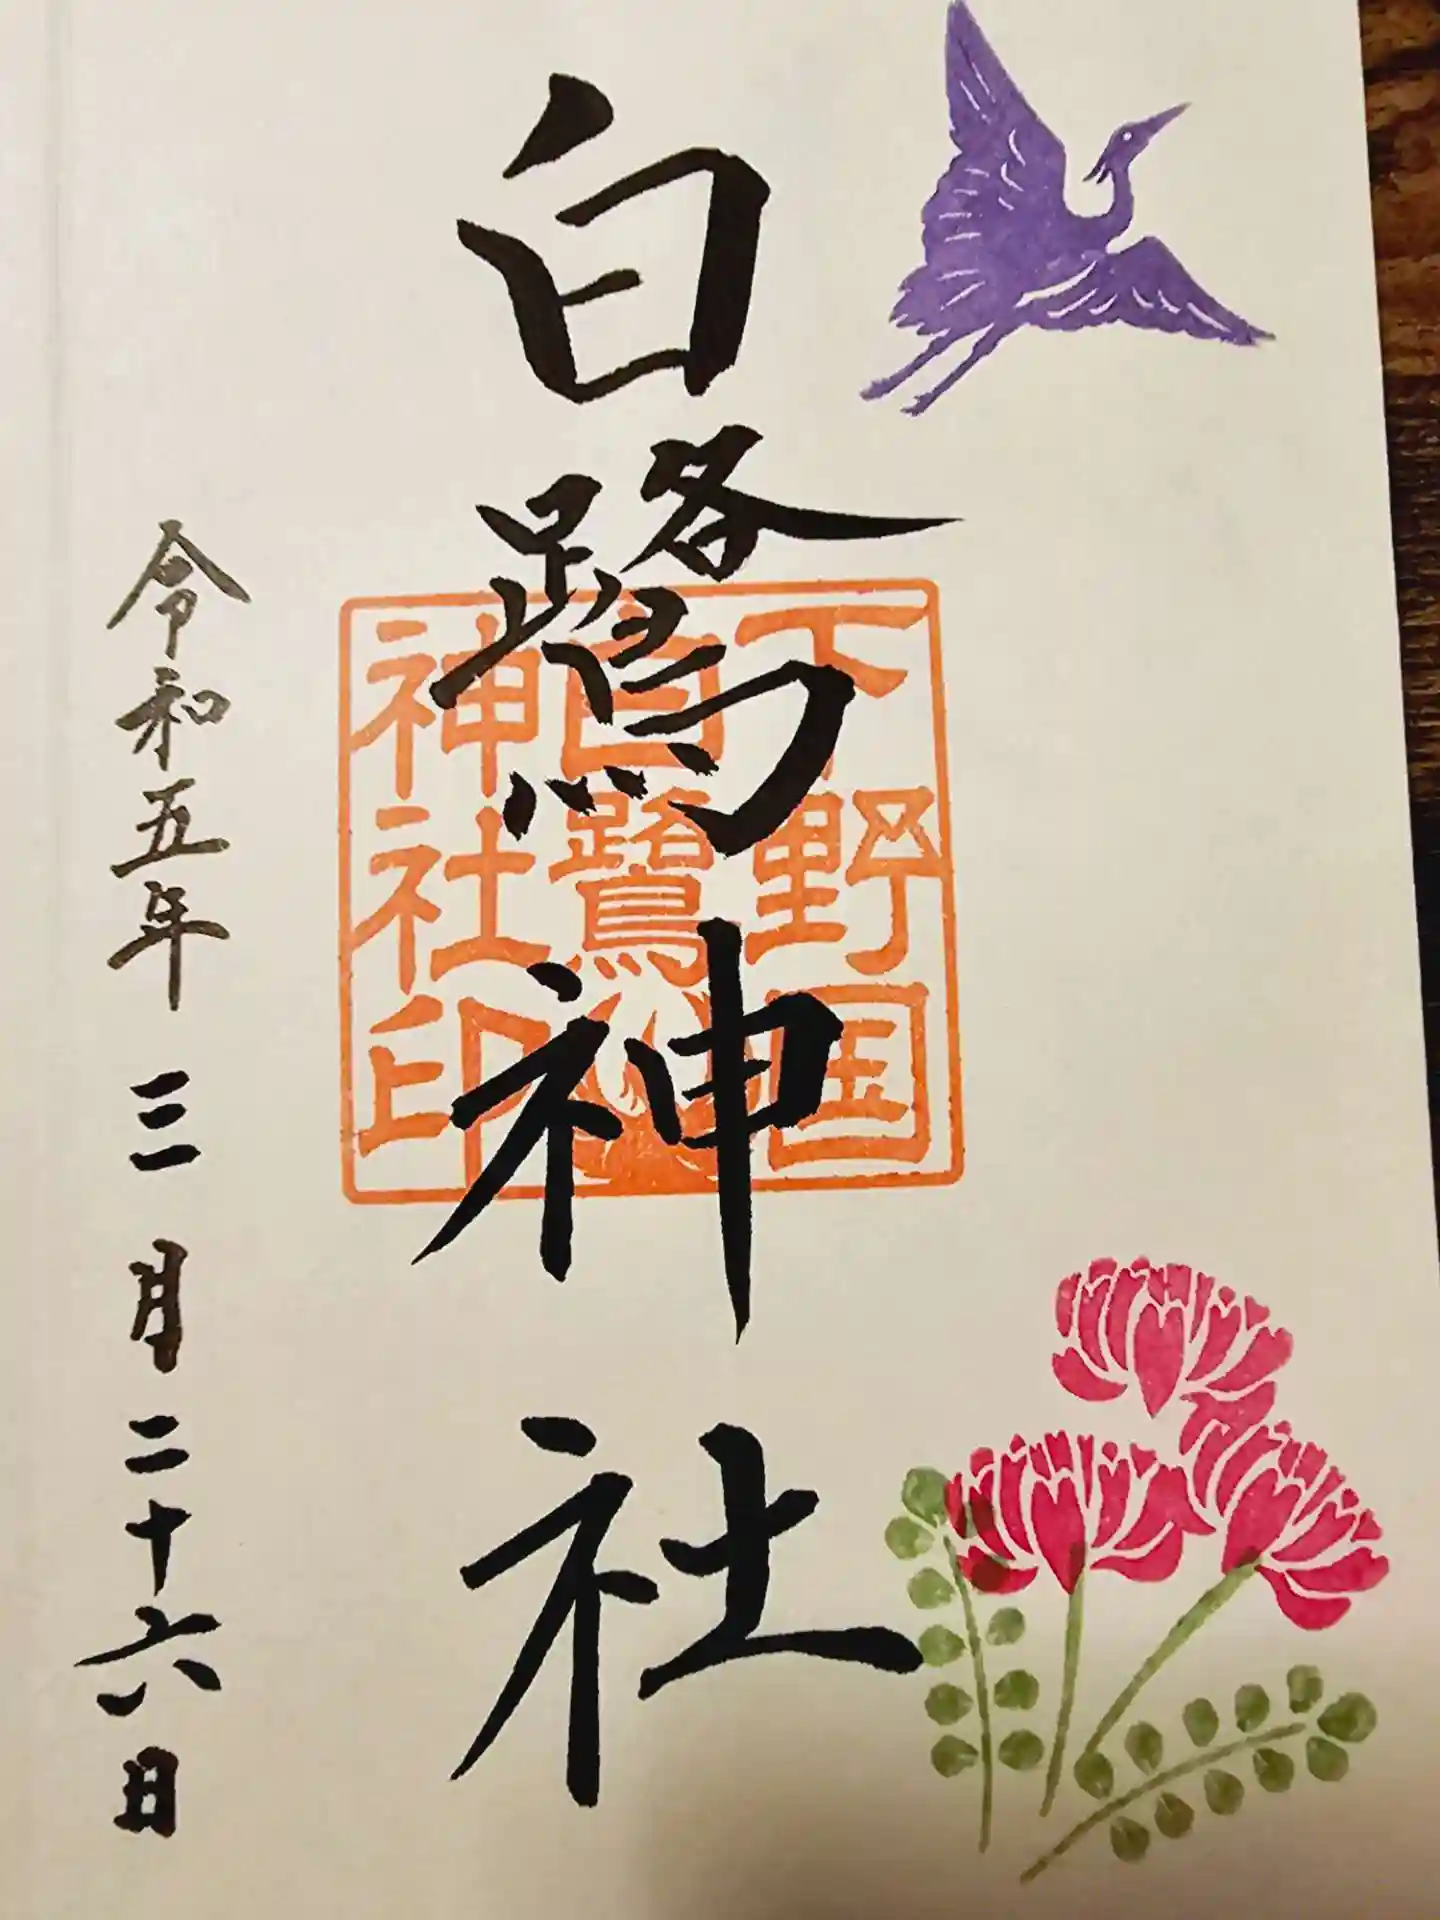 白鷺神社
下野国
白鷺
神社印
令和五年三月二十六日